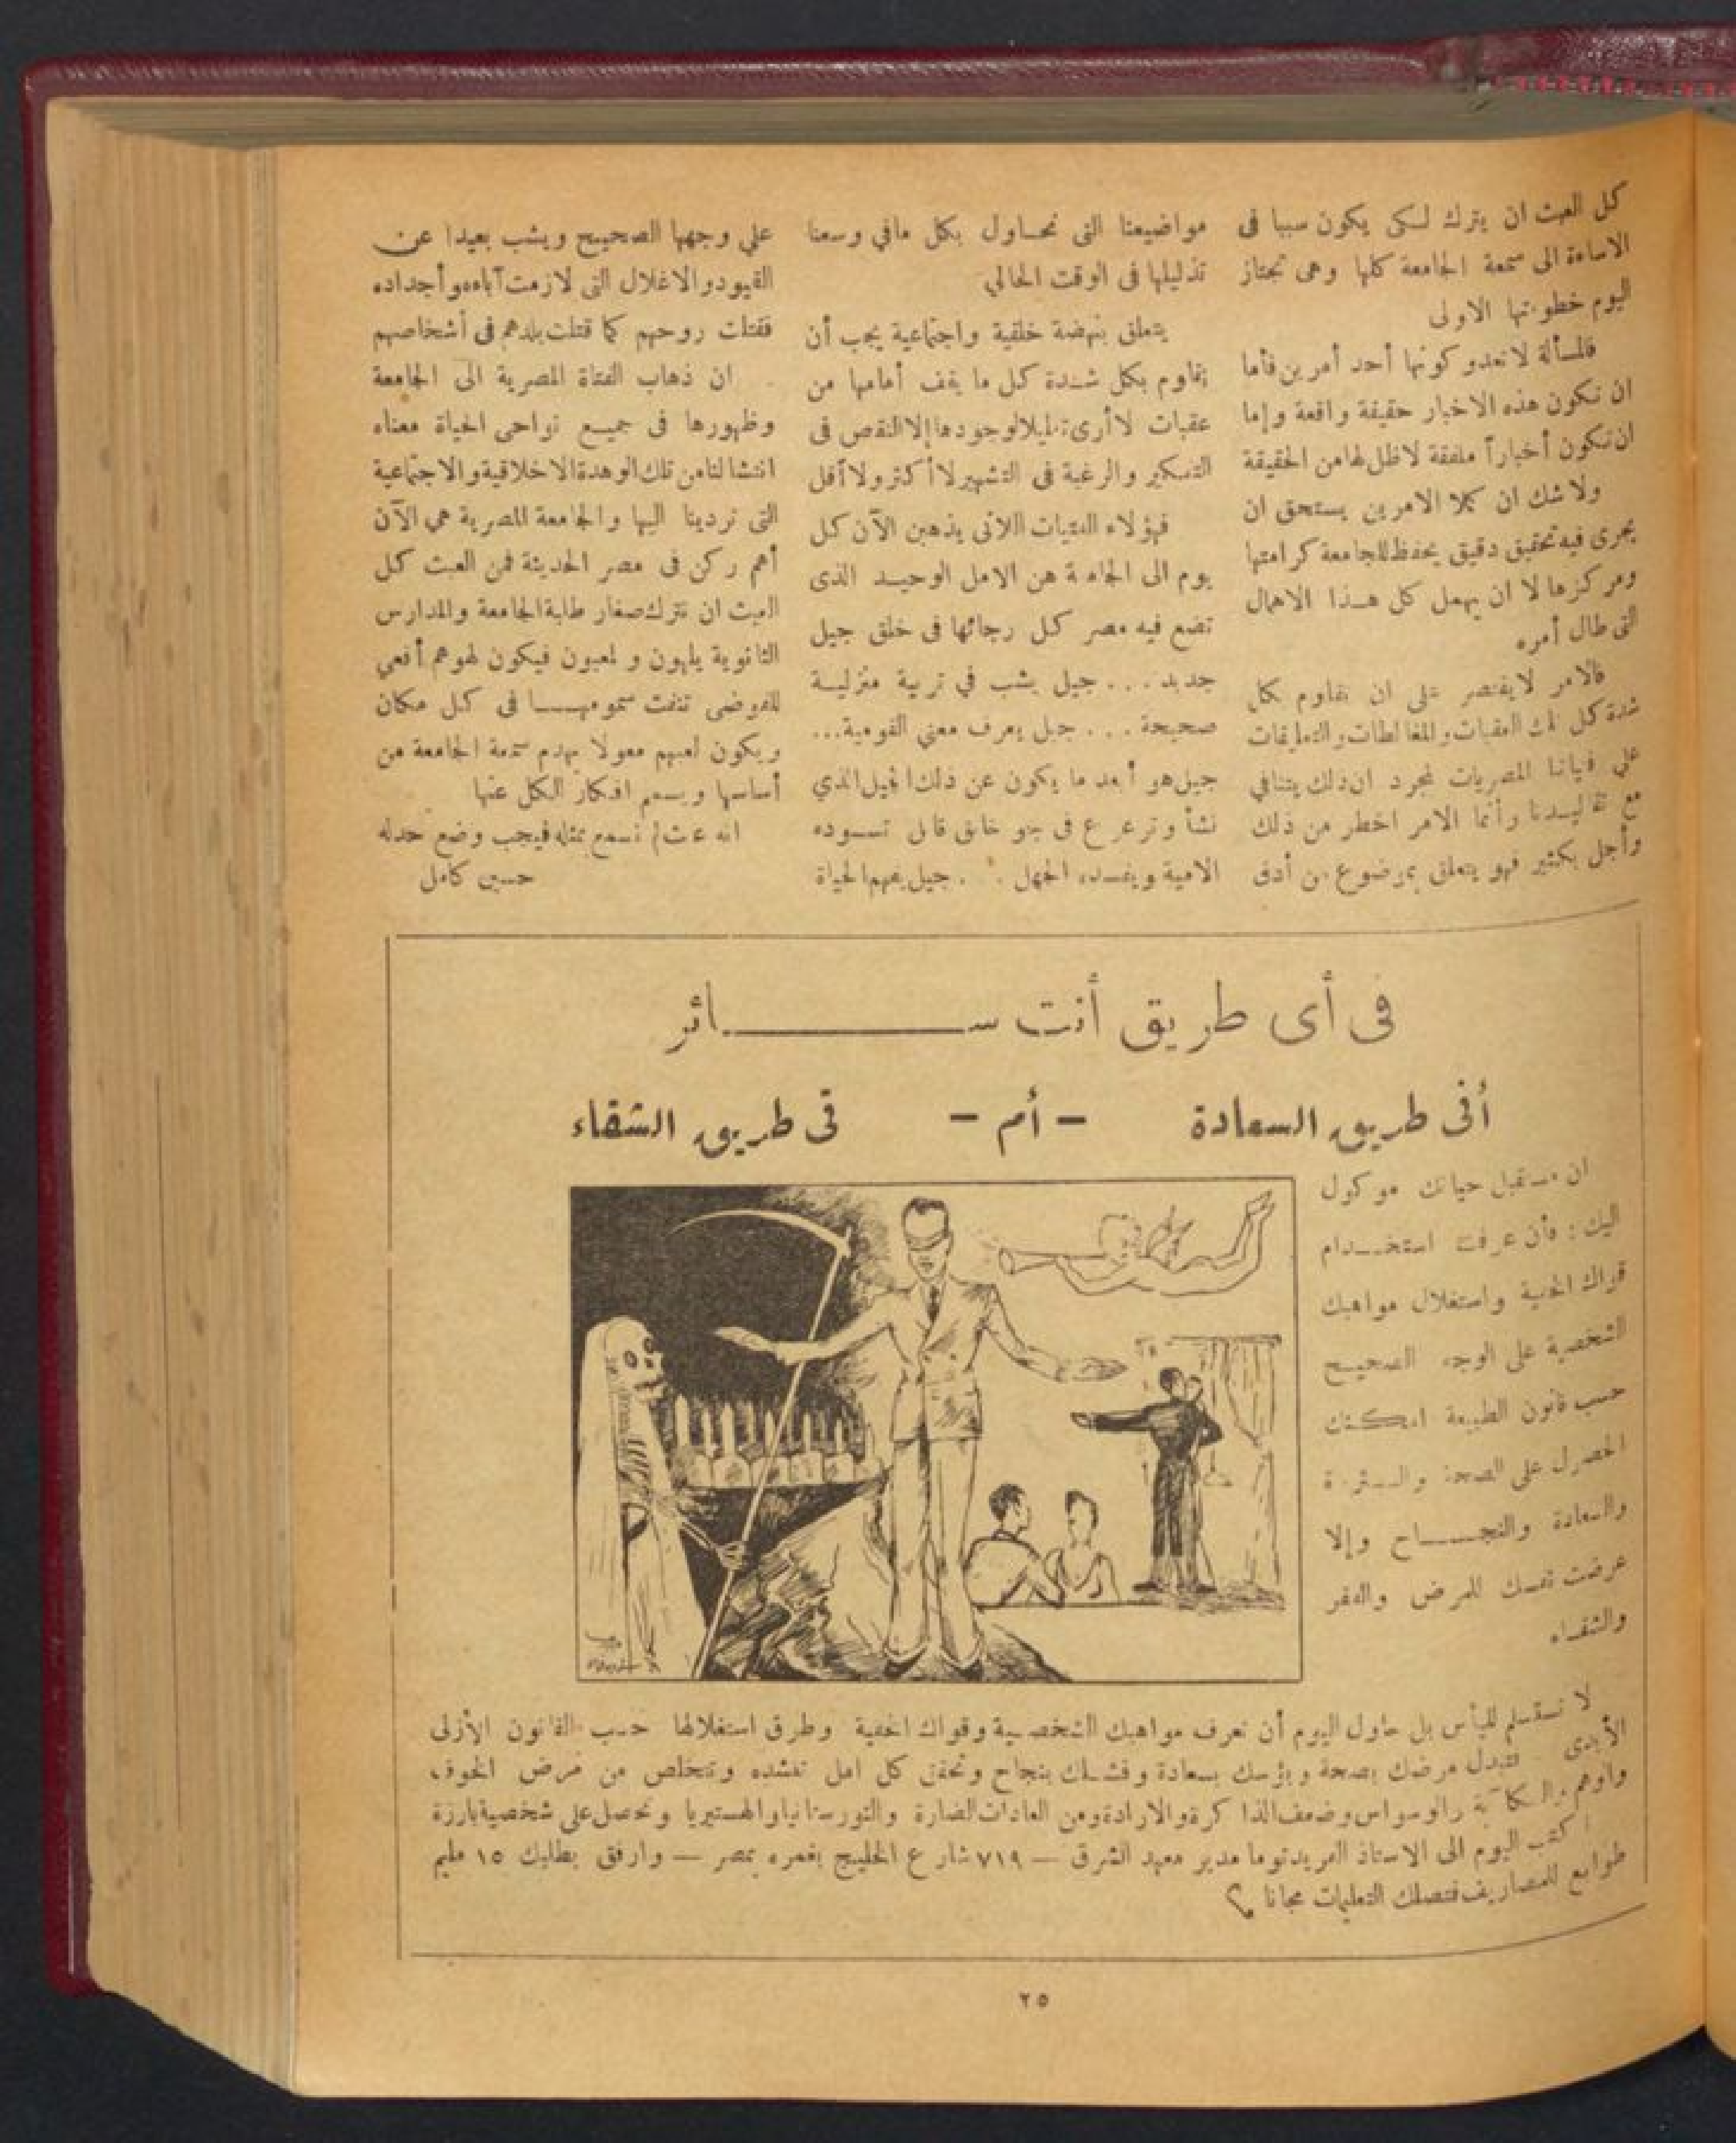 كل العبث ان يترك لكى يكون سببا فى
الاساءة الى سمعة الجامعة كلها وهى تجتاز
اليوم خطوتها الاولى
فالمسألة لا تعدو كونها أحد أمرين فأما
ان تكون هذه الاخبار حقيقة واقعة وإما
ان تكون أخباراً ملفقة لاظل لها من الحقيقة
ولا شك ان كلا الامرين يستحق ان
يجرى فيه تحقيق دقيق يحفظ للجامعة كرامتها
ومركزها لا ان يهمل كل هذا الاهمال
التى طال أمره
فالامر لايقتصر على ان نقاوم بكل
شدة كل تلك العقبات والمغالطات والتعليقات
على فتياتنا المصريات لمجرد ان ذلك يتنافي
مع تقاليدنا وأنما الامر اخطر من ذلك
وأجل بكثير فهو يتعلق بموضوع من أدق
مواضيعنا التى نحاول بكل مافي وسعنا
تذليلها فى الوقت الحالي
يتعلق بنهضة خلقية واجتماعية يجب أن
نقاوم بكل شدة كل ما يقف أمامها من
عقبات لا أرى تعليلا لوجودها إلا النقص فى
التفكير والرغبة فى التشهير لا أكثر ولا أقل
فهؤلاء الفتيات اللاتى يذهبن الآن كل
يوم الى الجامعة هن الامل الوحيد الذى
تضع فيه مصر كل رجائها فى خلق جيل
جديد... جيل يشب في تربية منزلية
صحيحة... جيل يعرف معني القومية...
جيل هو أبعد ما يكون عن ذلك الجيل الذي
نشأ وترعرع فى جو خانق قاتل تسوده
الامية ويفسده الجهل... جيل يفهم الحياة
علي وجهها الصحيح ويشب بعيدا عن
القيود والاغلال التى لازمت آباءه وأجداده
فقتلت روحهم كما قتلت بلدهم فى أشخاصهم
ان ذهاب الفتاة المصرية الى الجامعة
وظهورها فى جميع نواحى الحياة معناه
انتشالنا من تلك الوهدة الاخلاقية والاجتماعية
التى تردينا اليها والجامعة المصرية هى الآن
أهم ركن فى مصر الحديثة فمن العبث كل
العبث ان نترك صغار طلبة الجامعة والمدارس
الثانوية يلهون ويلعبون فيكون لهوهم أفعي
للفوضى تنفث سمومها فى كل مكان
ويكون لعبهم معولا يهدم سمعة الجامعة من
أساسها ويسمم افكار الكل عنها
انه عبث لم نسمع بمثله فيجب وضع حد له
حسين كامل
فى أى طريق أنت سائر
أفى طريق السعادة - أم - فى طريق الشقاء
ان مستقبل حياتك موكول
اليك: فأن عرفت استخدام
قواك الخفية واستغلال مواهبك
الشخصية على الوجه الصحيح
حسب قانون الطبيعة امكنك
الحصول على الصحة والثروة
والسعادة والنجاح وإلا
عرضت نفسك للمرض والفقر
والشقاء
لا تستسلم لليأس بل حاول اليوم أن تعرف مواهبك الشخصية وقواك الخفية وطرق استغلالها حسب القانون الأزلى
الأبدى فتبدل مرضك بصحة وبؤسك بسعادة وفشلك بنجاح وتحقق كل امل تنشده وتتخلص من مرض الخوف
والوهم والكآبة والوسواس وضعف الذاكرة والارادة ومن العادات الضارة والنورستانيا والهستيريا وتحصل على شخصية بارزة
اكتب اليوم الى الاستاذ الفريد توما مدير معهد الشرق — ٧١٩ شارع الخليج بغمره بمصر — وارفق بطلبك ١٥ مليم
طوابع للمصاريف فتصلك التعليمات مجانا
٢٥